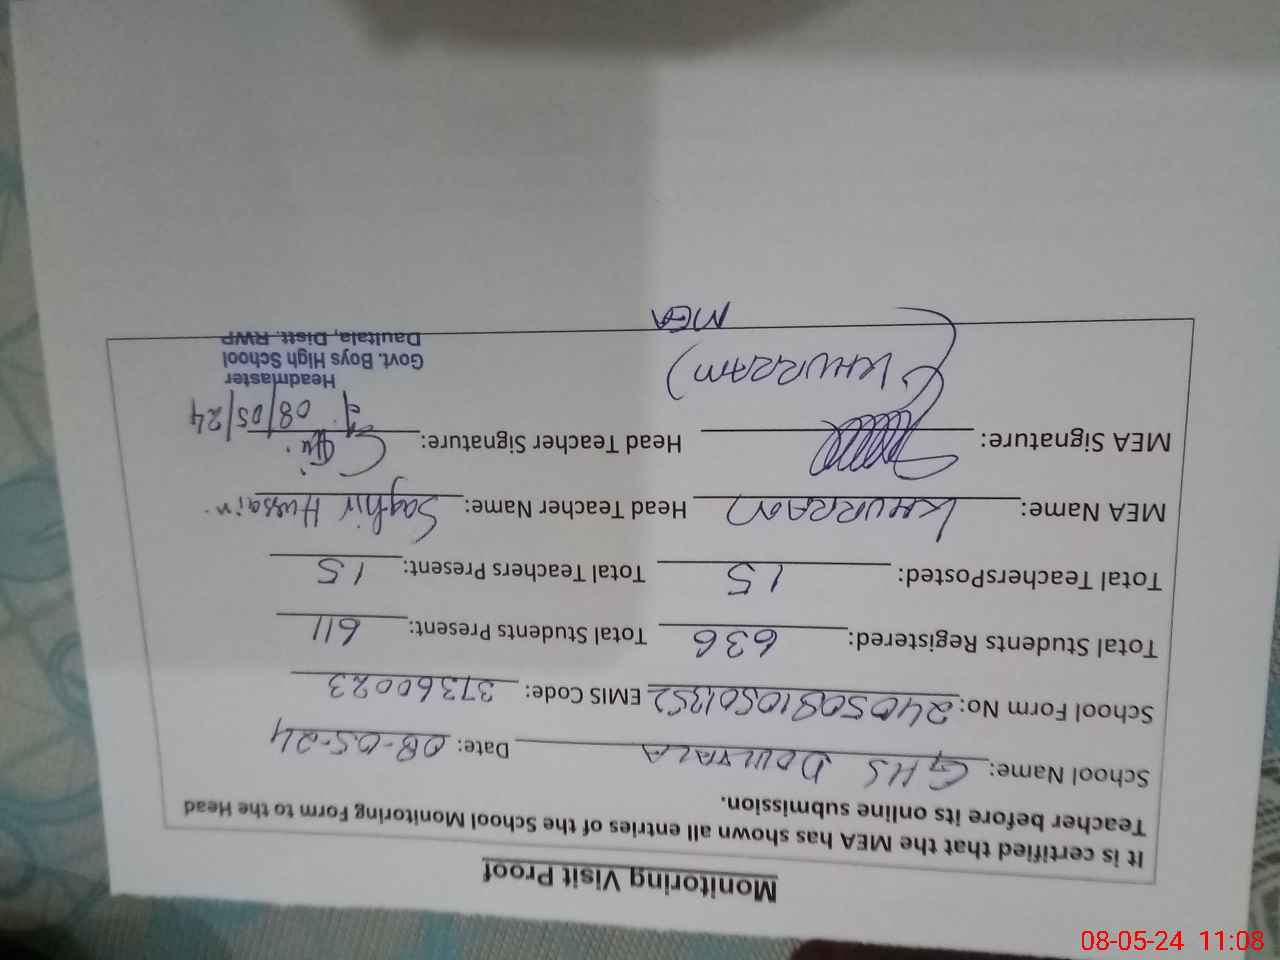 Monitoring Visit Proof
It is certified that the MEA has shown all entries of the School Monitoring Form to the Head
Teacher before its online submission.
School Name: GHS DOULTALA Date: 08-05-24
School Form No: 24050810501352 EMIS Code: 37360023
Total Students Registered: 636 Total Students Present: 611
Total TeachersPosted: 15 Total Teachers Present: 15
MEA Name: KHURRAM Head Teacher Name: Saghir Hussain
MEA Signature: Head Teacher Signature:
08/05/24
(KHURRAM)
MEA
Headmaster
Govt. Boys High School
Daultala, Distt. RWP
08-05-24 11:08